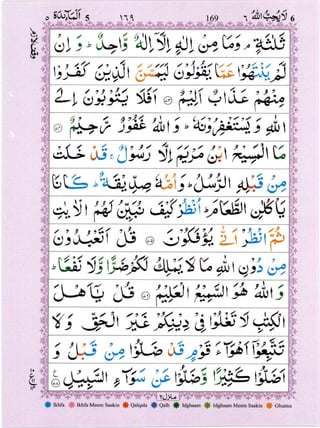 لَا يُحِبُّ اللهُ ٦ 169 ١٦٩ اَلْمَآئِدَة ٥
ثَلٰثَةٍ ۘ وَمَا مِنْ اِلٰهٍ اِلَّاۤ اِلٰهٌ وَّاحِدٌ ؕ وَ اِنْ
لَّمْ يَنْتَهُوْا عَمَّا يَقُوْلُوْنَ لَيَمَسَّنَّ الَّذِيْنَ كَفَرُوْا
مِنْهُمْ عَذَابٌ اَلِيْمٌ ۝ اَفَلَا يَتُوْبُوْنَ اِلَى
اللهِ وَ يَسْتَغْفِرُوْنَهٗ ؕ وَ اللهُ غَفُوْرٌ رَّحِيْمٌ ۝
مَا الْمَسِيْحُ ابْنُ مَرْيَمَ اِلَّا رَسُوْلٌ ۚ قَدْ خَلَتْ
مِنْ قَبْلِهِ الرُّسُلُ ؕ وَ اُمُّهٗ صِدِّيْقَةٌ ؕ كَانَا
يَاْكُلٰنِ الطَّعَامَ ؕ اُنْظُرْ كَيْفَ نُبَيِّنُ لَهُمُ الْاٰيٰتِ
ثُمَّ انْظُرْ اَنّٰى يُؤْفَكُوْنَ ۝ قُلْ اَتَعْبُدُوْنَ
مِنْ دُوْنِ اللهِ مَا لَا يَمْلِكُ لَكُمْ ضَرًّا وَّلَا نَفْعًا ؕ
وَ اللهُ هُوَ السَّمِيْعُ الْعَلِيْمُ ۝ قُلْ يٰۤاَهْلَ
الْكِتٰبِ لَا تَغْلُوْا فِيْ دِيْنِكُمْ غَيْرَ الْحَقِّ وَ لَا
تَتَّبِعُوْۤا اَهْوَآءَ قَوْمٍ قَدْ ضَلُّوْا مِنْ قَبْلُ وَ
اَضَلُّوْا كَثِيْرًا وَّ ضَلُّوْا عَنْ سَوَآءِ السَّبِيْلِ ۝
منزل ٢
Ikhfa Ikhfa Meem Saakin Qalqala Qalb Idghaam Idghaam Meem Saakin Ghunna